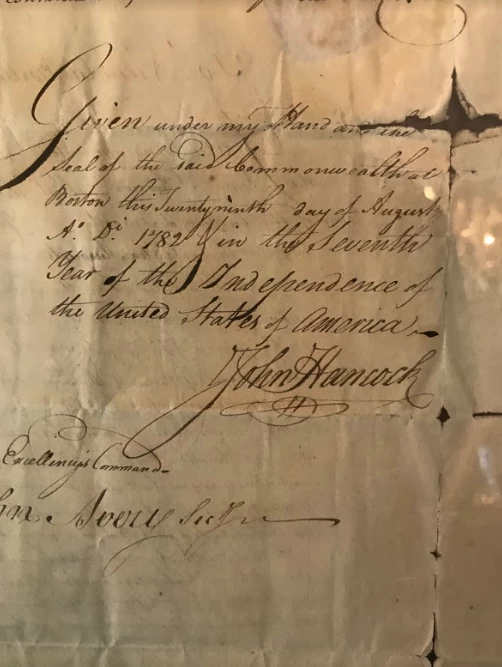 Given under my Hand and the
Seal of the said Commonwealth at
Boston this Twenty ninth day of August
A°. Di. 1782 & in the Seventh
Year of the Independence of
the United States of America
John Hancock
Excellency's Command
Avery Secy